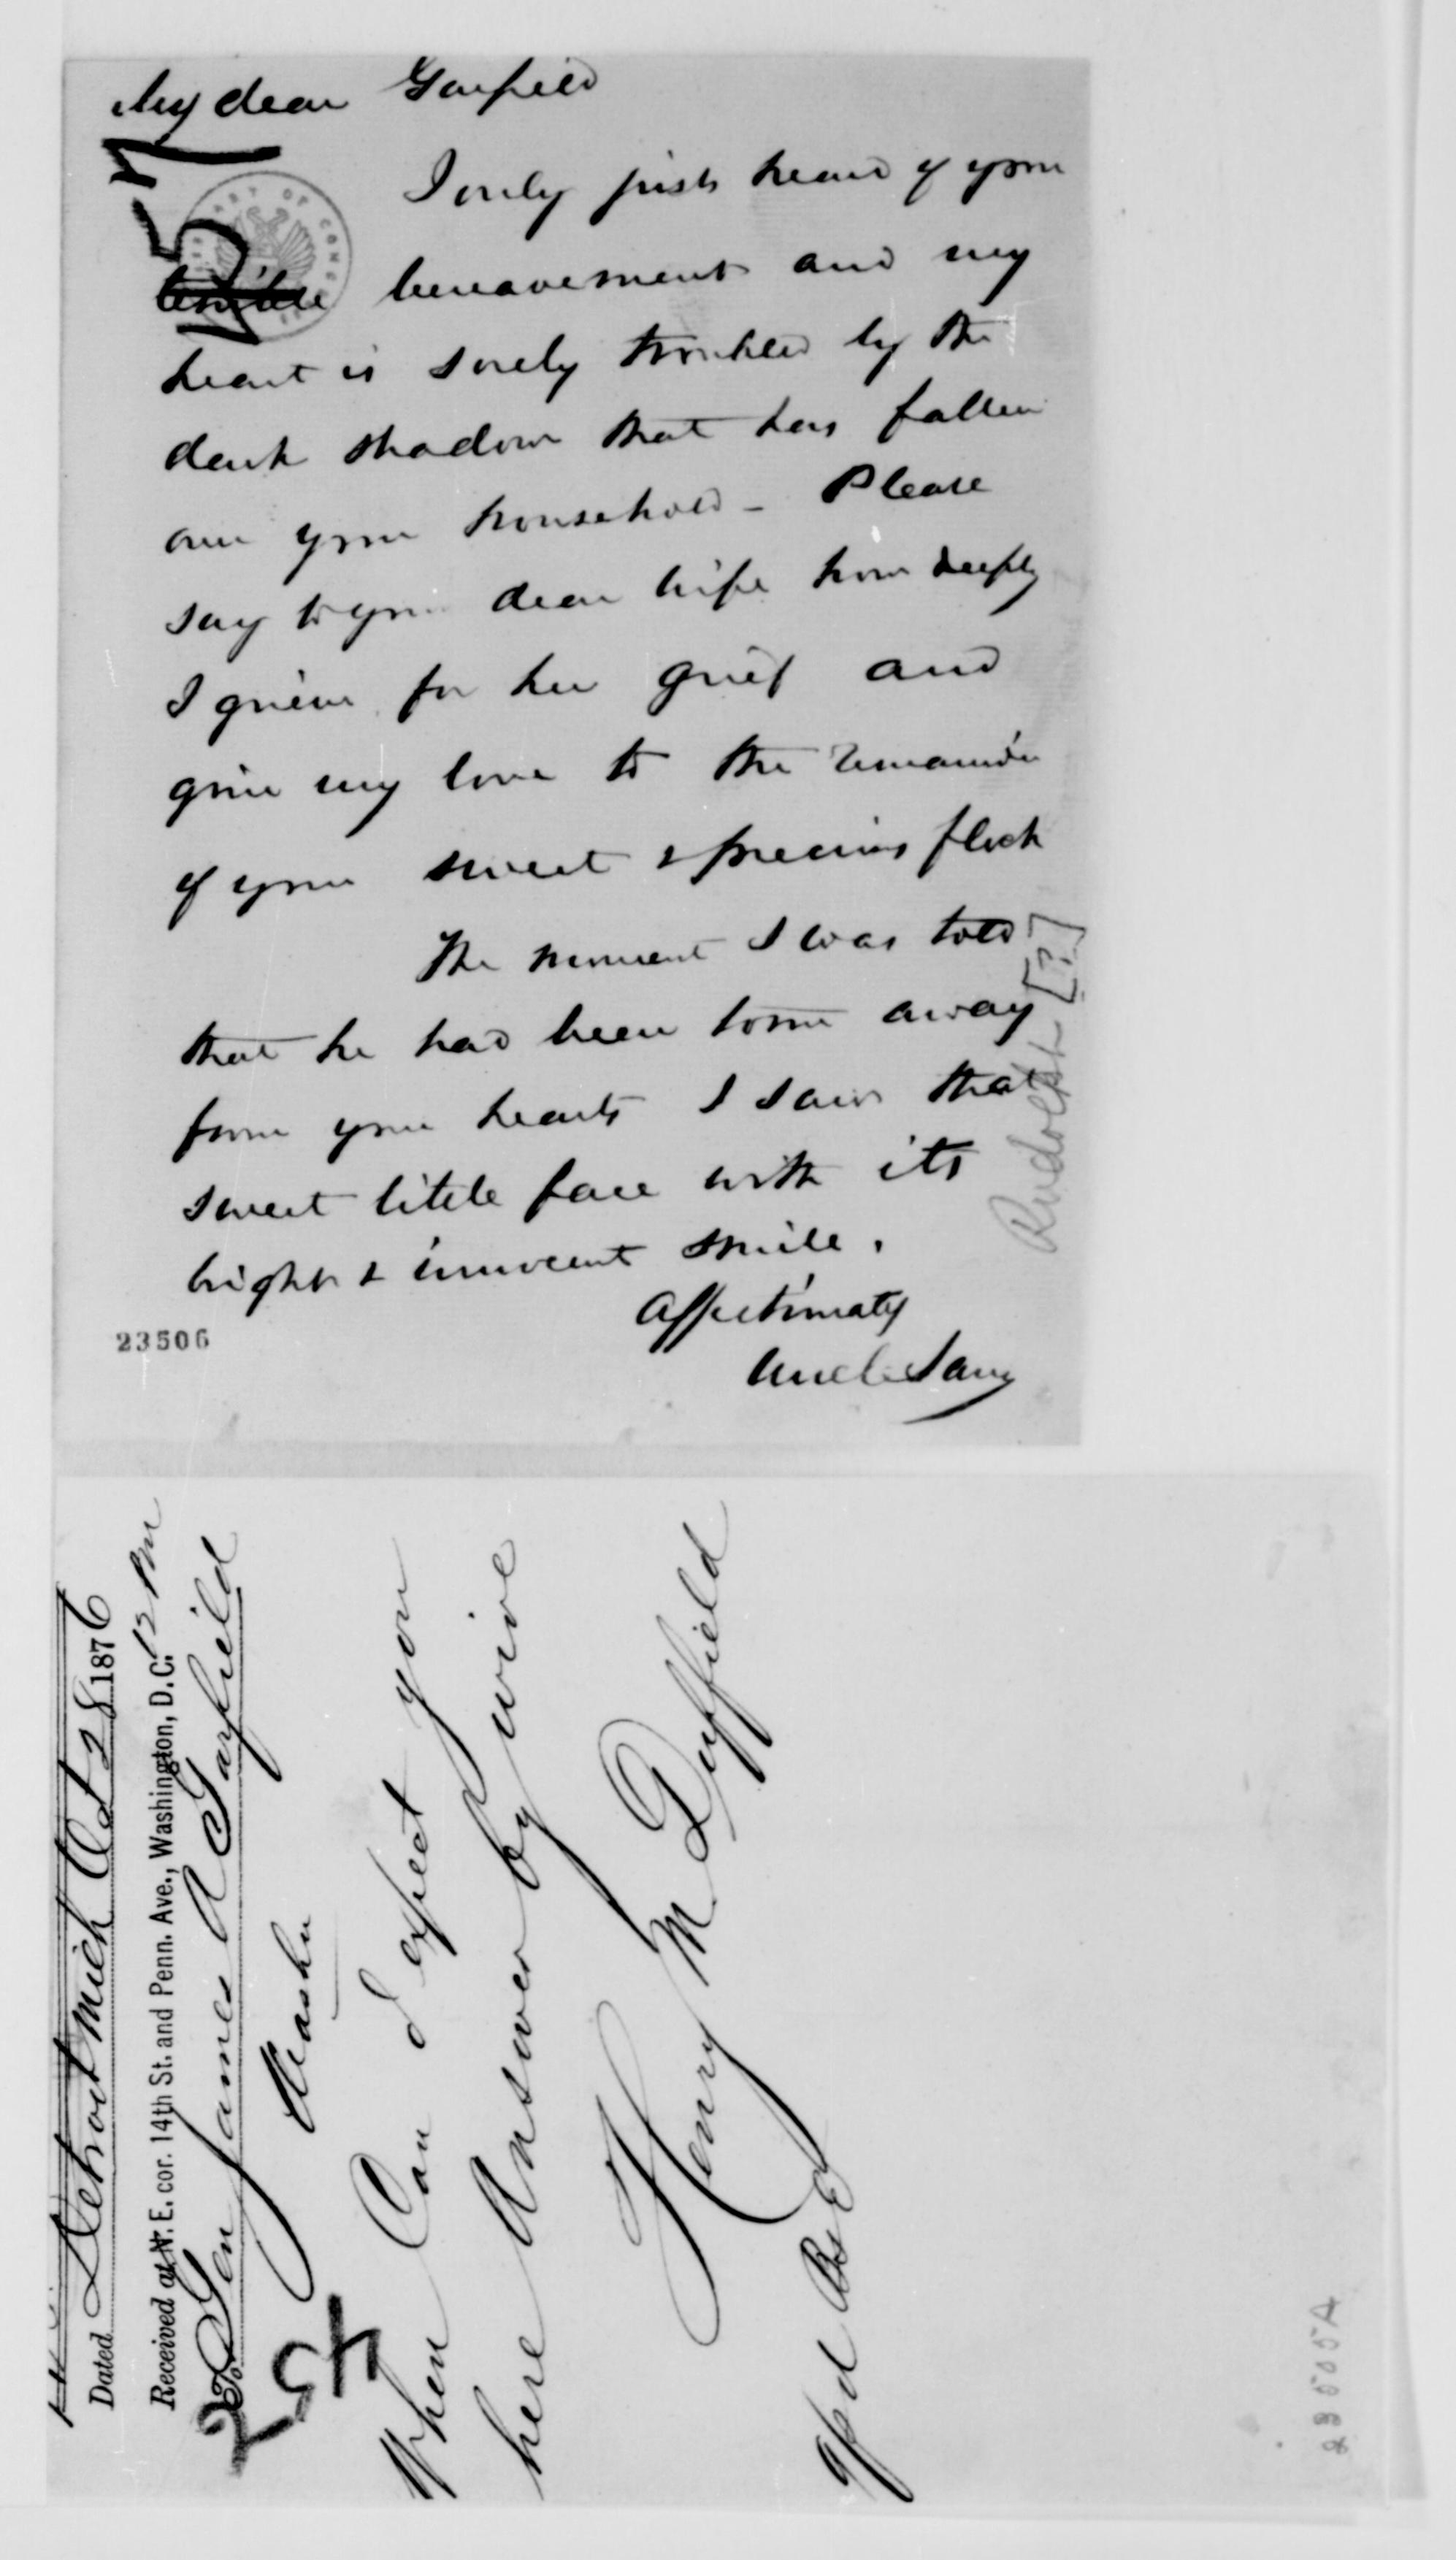 My dear Garfield
I only just heard of your
terrible bereavement and my
heart is sorely troubled by the
dark shadow that has fallen
over your household - Please
say to your dear wife how deeply
I grieve for her grief and
give my love to the remainder
of your sweet & precious flock
The moment I was told
that he had been torn away
from your hearts I saw that
sweet little face with its
bright & innocent smile.
Affectionately
Uncle Sam
23506
Rudolph [?]
Dated Detroit Mich Oct 28 1876
Received at N. E. cor. 14th St. and Penn. Ave., Washington, D.C. 12 M
To Gen James A Garfield
Washn
When Can I expect you
here Answer by wire
Henry M Duffield
9 pd
254